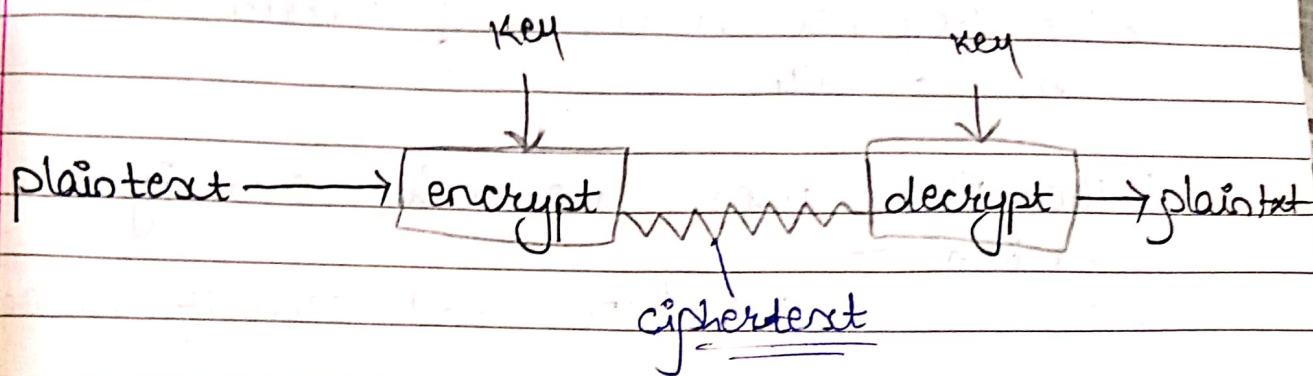 Key key
plaintext encrypt decrypt plaintxt
ciphertext